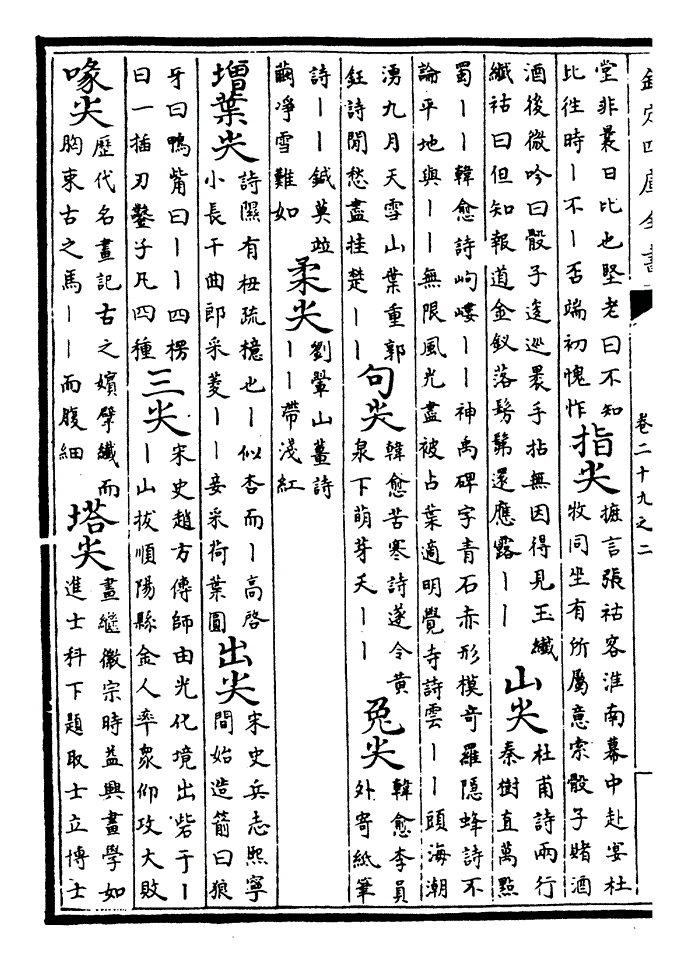 欽定四庫全書 卷二十九之二 一
堂非曩日比也堅老曰不知
比往時丨不丨否端初愧怍
指尖
摭言張祜客淮南幕中赴宴杜
牧同坐有所屬意索骰子賭酒
酒後微吟曰骰子逡巡裹手拈無因得見玉纖
纖祜曰但知報道金釵落髣髴還應露丨丨
山尖
杜甫詩兩行
秦樹直萬點
蜀丨丨韓愈詩岣嶁丨丨神禹碑字青石赤形模奇羅隱蜂詩不
論平地與丨丨無限風光盡被占葉適明覺寺詩雲丨丨頭海潮
湧九月天雪山葉重郭
鈺詩閒愁盡挂楚丨丨
句尖
韓愈苦寒詩遂令黄
泉下萌芽夭丨丨
兔尖
韓愈李員
外寄紙筆
詩丨丨鍼莫竝
繭凈雪難如
柔尖
劉翬山薑詩
丨丨帶淺紅
增葉尖
詩隰有杻疏檍也丨似杏而丨高啓
小長干曲郎采菱丨丨妾采荷葉圓
出尖
宋史兵志熙寧
間始造箭曰狼
牙曰鴨觜曰丨丨四楞
曰一插刃鑿子凡四種
三尖
宋史趙方傳師由光化境出砦于丨
丨山拔順陽縣金人率衆仰攻大敗
喙尖
歷代名畫記古之嬪擘纖而
胸束古之馬丨丨而腹細
塔尖
畫繼徽宗時益興畫學如
進士科下題取士立博士